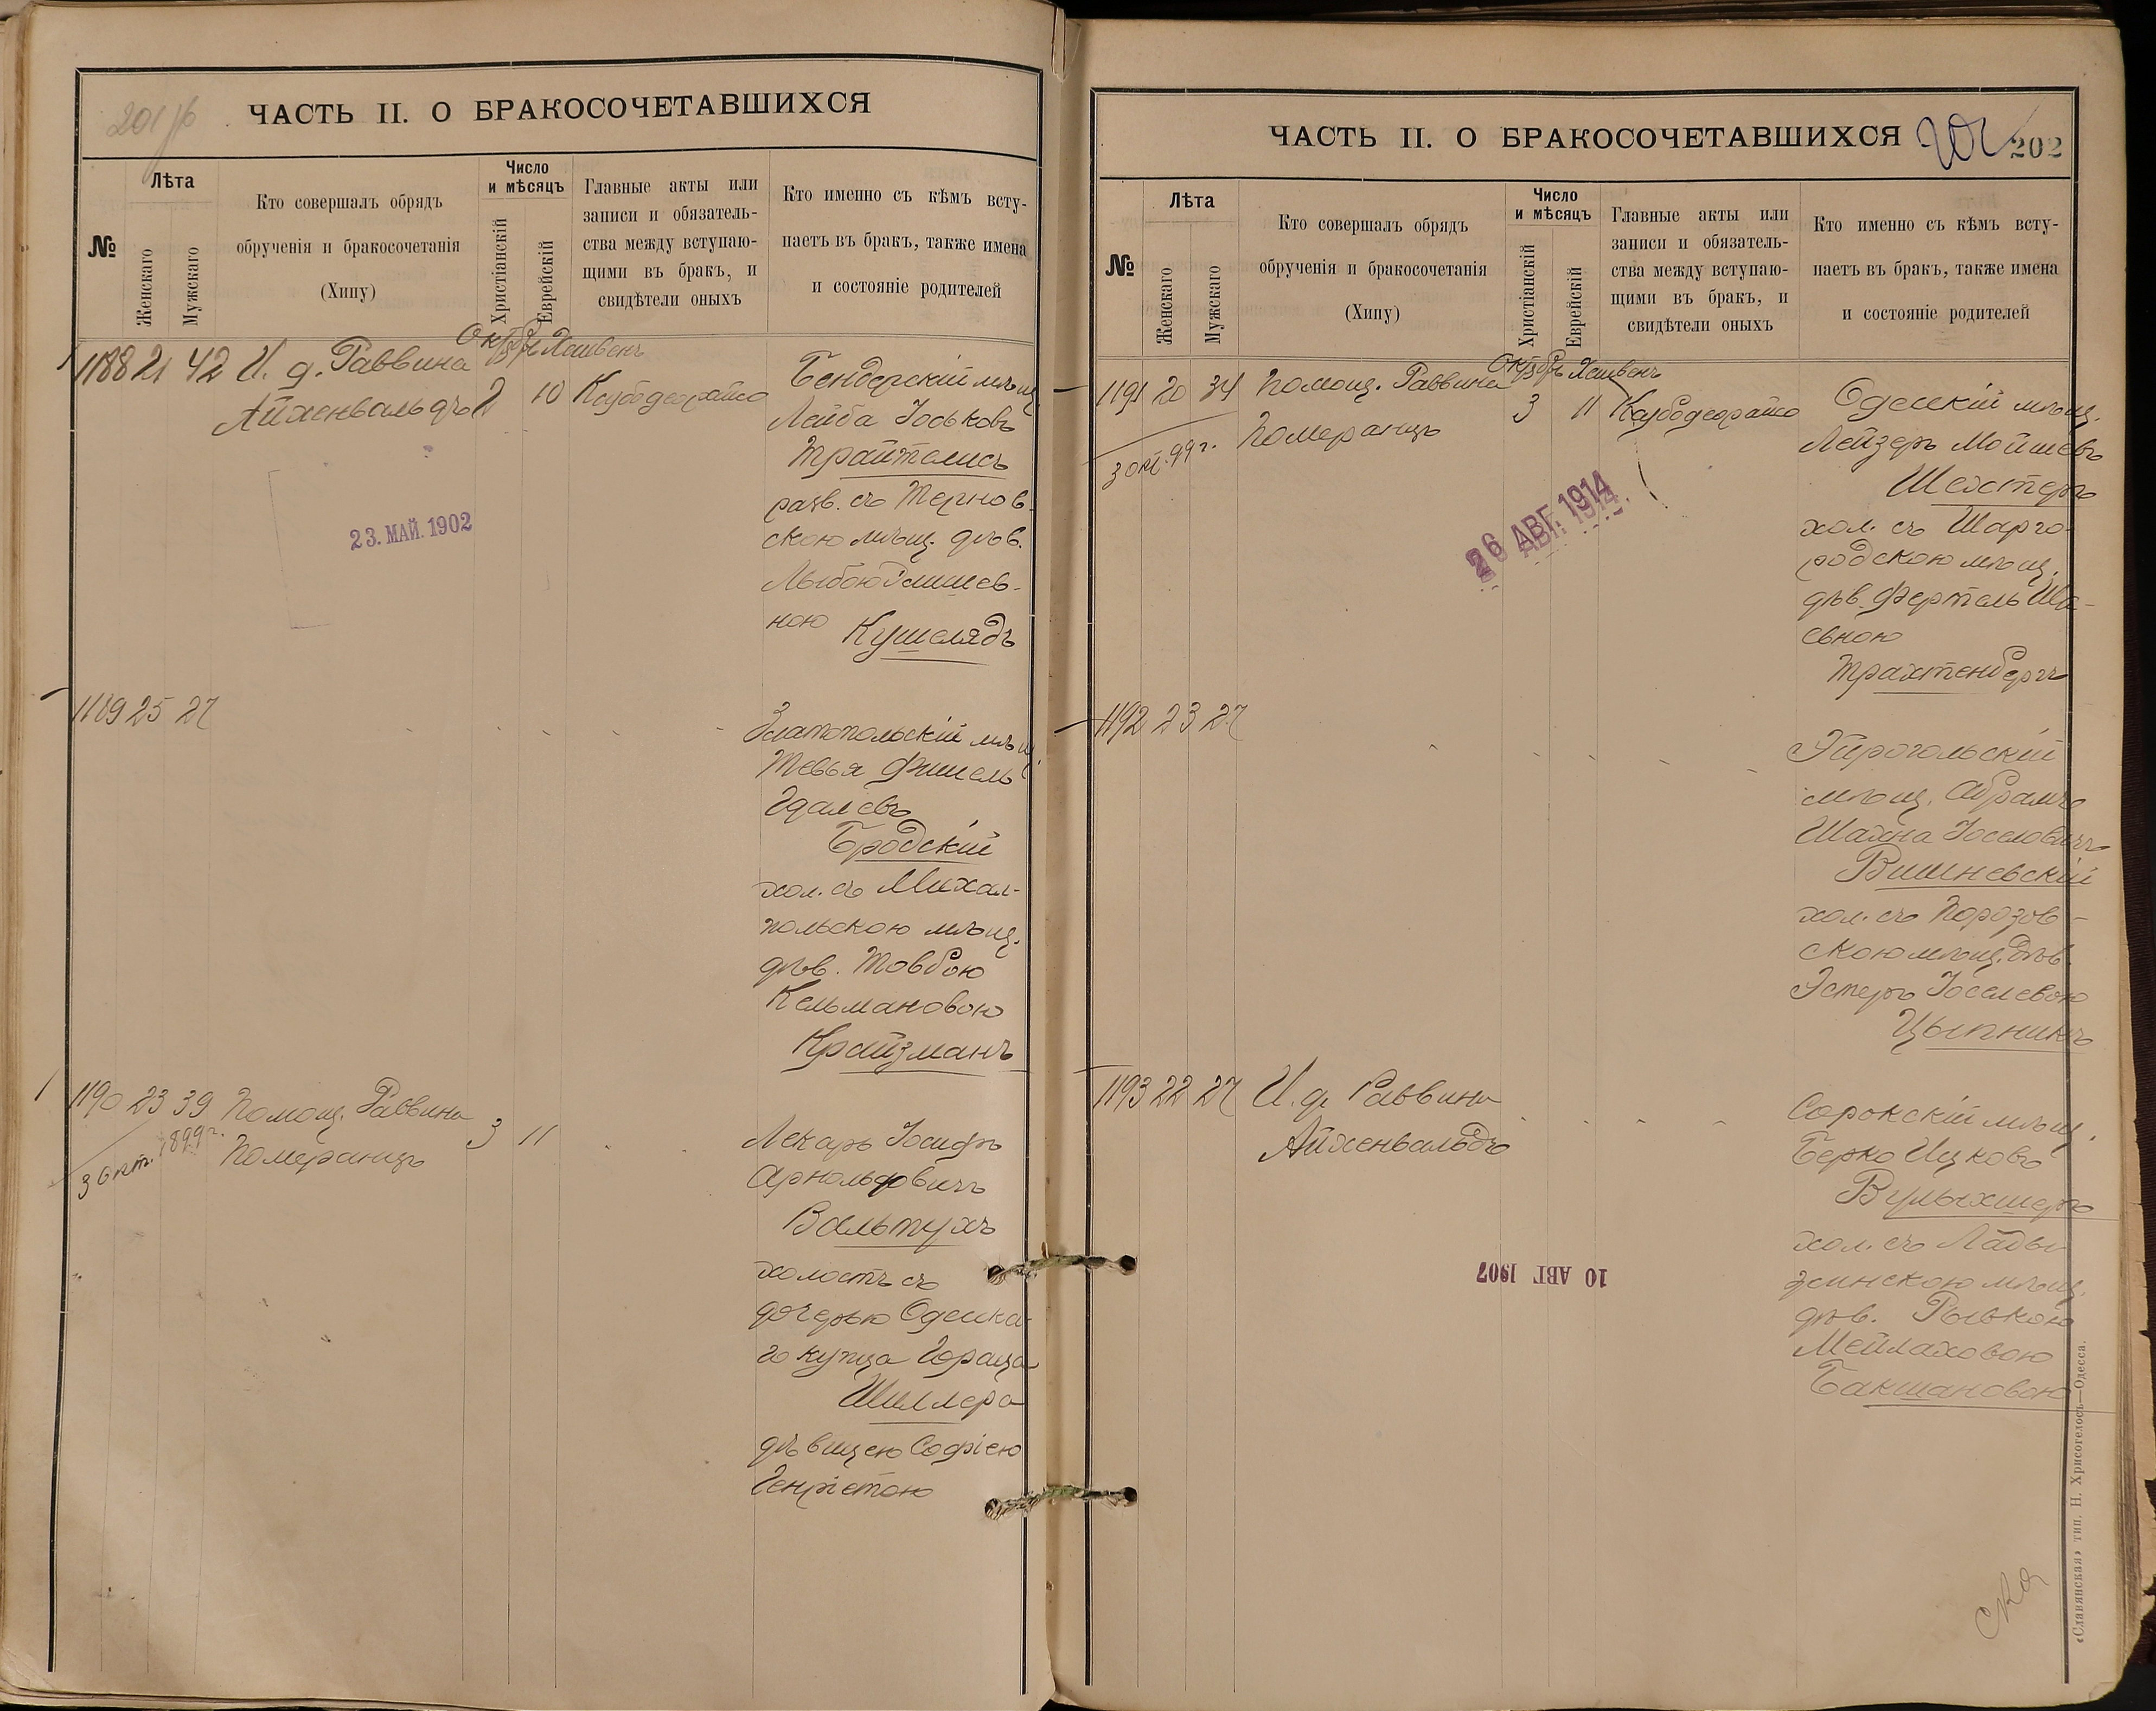 201/б
ЧАСТЬ II. О БРАКОСОЧЕТАВШИХСЯ
№
Лѣта
Женскаго
Мужскаго
Кто совершалъ обрядъ
обрученія и бракосочетанія
(Хипу)
Число
и мѣсяцъ
Христіанскій
Еврейскій
Главные акты или
записи и обязатель-
ства между вступаю-
щими въ бракъ, и
свидѣтели оныхъ
Кто именно съ кѣмъ всту-
паетъ въ бракъ, также имена
и состояніе родителей
Октбр Хешвенъ
1188 21 42 И. д. Раввина
Айхенвальдъ 2 10
Бендерскій мѣщ
Лейба Іоськовъ
Трайтелисъ
разв. съ Тернов
скою мѣщ. дѣв.
ною Кушелядъ
23. МАЙ. 1902
1189 25 27
Златопольскій мѣщ
Тевья Фишель
Гдалевъ
Бродскій
хол. съ Михал-
польскою мѣщ.
дѣв. Товбою
Кельмановою
Крайзманъ
1190 23 39 Помощ. Раввина
Померанцъ 3 11
3 Окт. 1899 г.
Лекарь Іосифъ
Арнольдовичъ
Вальтухъ
холостъ съ
дочерью Одесска-
го купца Гораца
Шиллера
дѣвицею Софіею
Генріетою
ЧАСТЬ II. О БРАКОСОЧЕТАВШИХСЯ
202
№
Лѣта
Женскаго
Мужскаго
Кто совершалъ обрядъ
обрученія и бракосочетанія
(Хипу)
Число
и мѣсяцъ
Христіанскій
Еврейскій
Главные акты или
записи и обязатель-
ства между вступаю-
щими въ бракъ, и
свидѣтели оныхъ
Кто именно съ кѣмъ всту-
паетъ въ бракъ, также имена
и состояніе родителей
Октбрь Хешвенъ
1191 20 34 Помощ. Раввина
Померанцъ 3 11
3 окт. 99 г.
Одесскій мѣщ.
Лейзеръ Мойшевъ
Шехтеръ
хол. съ Шарго-
родскою мѣщ.
дѣв. Фертель Ша-
евною
Трахтенбергъ
26 АВГ. 1914
1192 23 27
Эйрогольскій
мѣщ. Абрамъ
Шахна Іоселовичъ
Вишневскій
хол. съ Порозов-
скою мѣщ. дѣв.
Эстеръ Іоселевою
Цыпникъ
1193 22 27 И. д. Раввина
Айхенвальдъ
Сорокскій мѣщ.
Берко Ицковъ
Вулыхшеръ
хол. съ Лады
жинскою мѣщ.
дѣв. Рывкою
Мейлаховою
Бакшановою
10 АВГ 1907
«Славянская» тип. Н. Хрисогелосъ—Одесса.